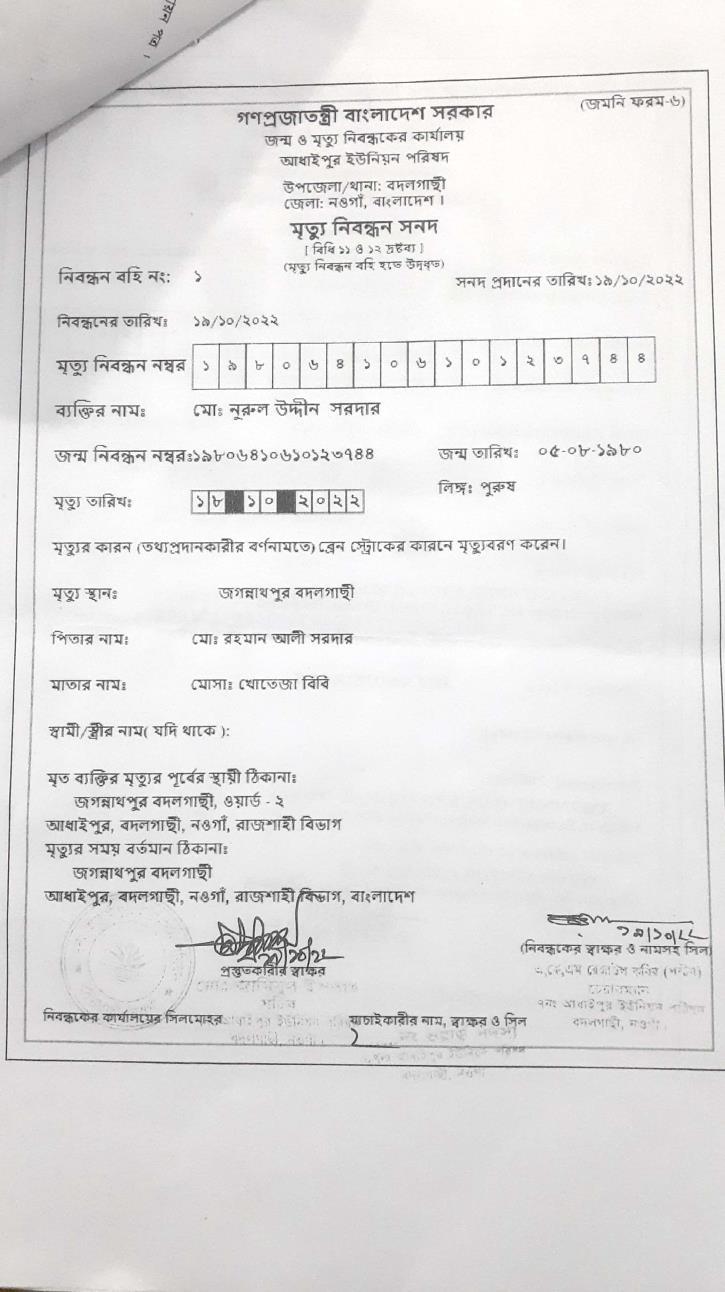 (জমনি ফরম-৬)
গণপ্রজাতন্ত্রী বাংলাদেশ সরকার
জন্ম ও মৃত্যু নিবন্ধকের কার্যালয়
আধাইপুর ইউনিয়ন পরিষদ
উপজেলা/থানা: বদলগাছী
জেলা: নওগাঁ, বাংলাদেশ ।
মৃত্যু নিবন্ধন সনদ
[ বিধি ১১ ও ১২ দ্রষ্টব্য ]
(মৃত্যু নিবন্ধন বহি হতে উদ্বৃত)
নিবন্ধন বহি নং: ১
সনদ প্রদানের তারিখঃ ১৯/১০/২০২২
নিবন্ধনের তারিখঃ ১৯/১০/২০২২
মৃত্যু নিবন্ধন নম্বর ১ ৯ ৮ ০ ৬ ৪ ১ ০ ৬ ১ ০ ১ ২ ৩ ৭ ৪ ৪
ব্যক্তির নামঃ মো: নূরুল উদ্দীন সরদার
জন্ম নিবন্ধন নম্বরঃ১৯৮০৬৪১০৬১০১২৩৭৪৪ জন্ম তারিখঃ ০৫-০৮-১৯৮০
লিঙ্গ: পুরুষ
মৃত্যু তারিখঃ ১ ৮ ১ ০ ২ ০ ২ ২
মৃত্যুর কারন (তথ্যপ্রদানকারীর বর্ণনামতে) ব্রেন স্ট্রোকের কারনে মৃত্যুবরণ করেন।
মৃত্যু স্থানঃ জগন্নাথপুর বদলগাছী
পিতার নামঃ মো: রহমান আলী সরদার
মাতার নামঃ মোসা: খোতেজা বিবি
স্বামী/স্ত্রীর নাম( যদি থাকে ):
মৃত ব্যক্তির মৃত্যুর পূর্বের স্থায়ী ঠিকানাঃ
জগন্নাথপুর বদলগাছী, ওয়ার্ড - ২
আধাইপুর, বদলগাছী, নওগাঁ, রাজশাহী বিভাগ
মৃত্যুর সময় বর্তমান ঠিকানাঃ
জগন্নাথপুর বদলগাছী
আধাইপুর, বদলগাছী, নওগাঁ, রাজশাহী বিভাগ, বাংলাদেশ
১৯/১০/২২
১৯/১০/২২
প্রস্তুতকারীর স্বাক্ষর
(নিবন্ধকের স্বাক্ষর ও নামসহ সিল)
নিবন্ধকের কার্যালয়ের সিলমোহর
যাচাইকারীর নাম, স্বাক্ষর ও সিল
বদলগাছী, নওগাঁ।